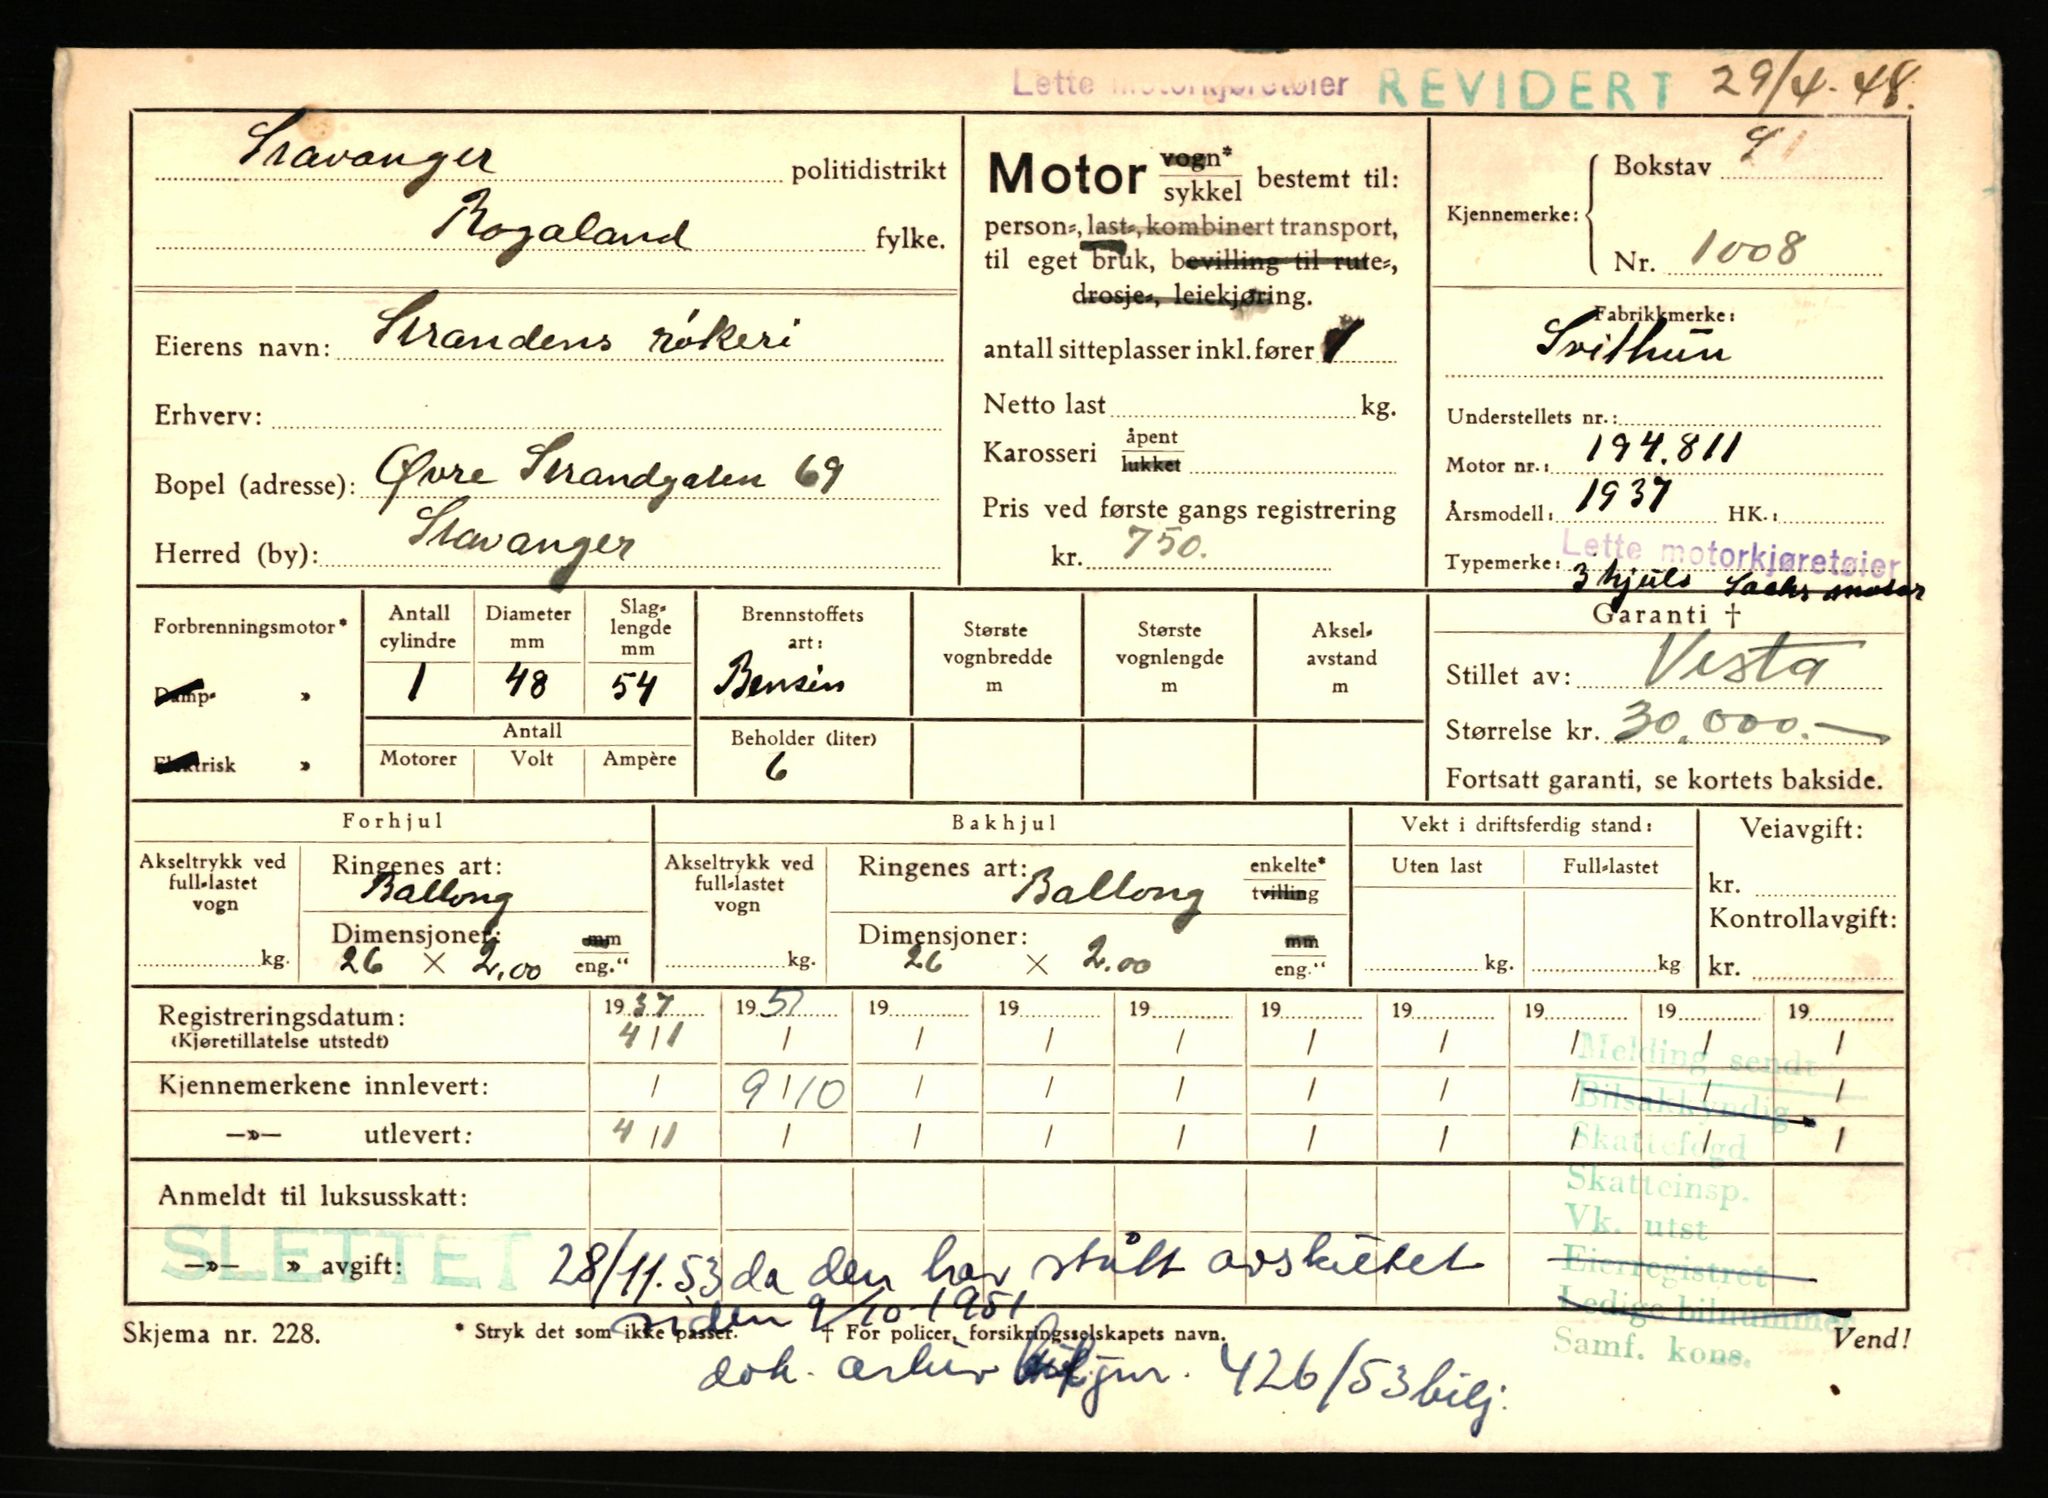 Lette motorkjøretøier REVIDERT 29/4-48.
Stavanger politidistrikt
Rogaland fylke.
Eierens navn: Strandens rökeri
Erhverv:
Bopel (adresse): Øvre Strandgaten 69
Herred (by): Stavanger
Motor vogn* sykkel bestemt til:
person-, last-, kombinert transport,
til eget bruk, bevilling til rute-,
drosje-, leiekjøring.
antall sitteplasser inkl. fører 1
Netto last kg.
Karosseri åpent lukket
Pris ved første gangs registrering
kr. 750.
Kjennemerke: Bokstav
Nr. 1008
Fabrikkmerke:
Svithun
Understellets nr.:
Motor nr.: 194.811
Årsmodell: 1937 HK.:
Lette motorkjøretøier
Typemerke: 3 hjuls Sachs motor
Forbrenningsmotor*
Damp- »
Elektrisk »
Antall cylindre
1
Diameter mm
48
Slag-lengde mm
54
Antall
Motorer Volt Ampère
Brennstoffets art:
Bensin
Beholder (liter)
6
Største vognbredde m
Største vognlengde m
Aksel-avstand m
Garanti †
Stillet av: Vesta
Størrelse kr. 30.000.-
Fortsatt garanti, se kortets bakside.
Forhjul
Akseltrykk ved full-lastet vogn
kg.
Ringenes art:
Ballong
Dimensjoner: mm
26 × 2.00 eng.“
Bakhjul
Akseltrykk ved full-lastet vogn
kg.
Ringenes art: enkelte*
Ballong tvilling
Dimensjoner: mm
26 × 2.00 eng.“
Vekt i driftsferdig stand:
Uten last Full-lastet
kg. kg
Veiavgift:
kr.
Kontrollavgift:
kr.
19 37 19 51 19 19 19 19 19 19 19 19
Registreringsdatum: 4/11 / / / / / / / / /
(Kjøretillatelse utstedt)
Kjennemerkene innlevert: / 9/10 / / / / / / / /
—»— utlevert: 4/11 / / / / / / / / /
Melding sendt
Bilsakkyndig
Skattefogd
Skatteinsp.
Vk. utst
Eierregistret
Ledige bilnummer
Samf. kons.
Anmeldt til luksusskatt:
SLETTET
—»— » avgift: 28/11.53 da den har stått avskiltet
siden 9/10-1951
Skjema nr. 228. * Stryk det som ikke passer. † For policer, forsikringsselskapets navn. Vend!
dok. arkiv jnr. 426/53 bilj.